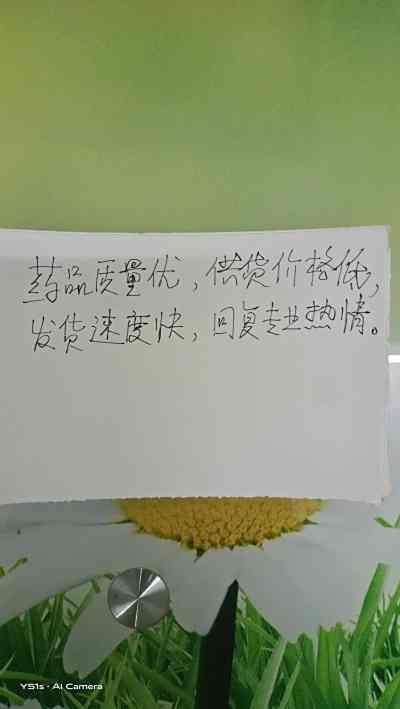 药品质量优，供货价格低，
发货速度快，回复专业热情。
Y51s · AI Camera